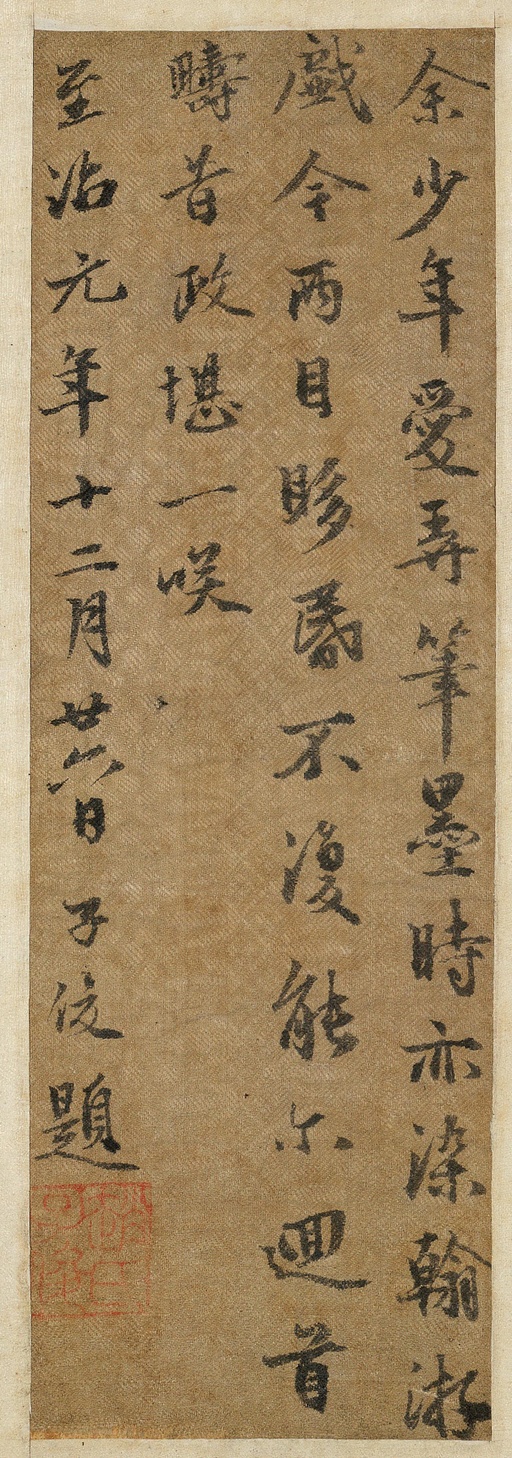 余少年愛弄筆墨時亦染翰游
戯今兩目眵昏不復能尓迴首
疇昔政堪一咲
至治元年十二月廿六日子俊題